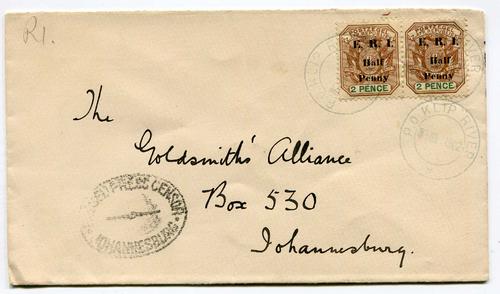 R1.
E. R. I.
Half
Penny
2 PENCE
E. R. I.
Half
Penny
2 PENCE
P.O KLIP RIVER
The
Goldsmith's Alliance
Box 530
Johannesburg.
PRESS CENSOR
JOHANNESBURG